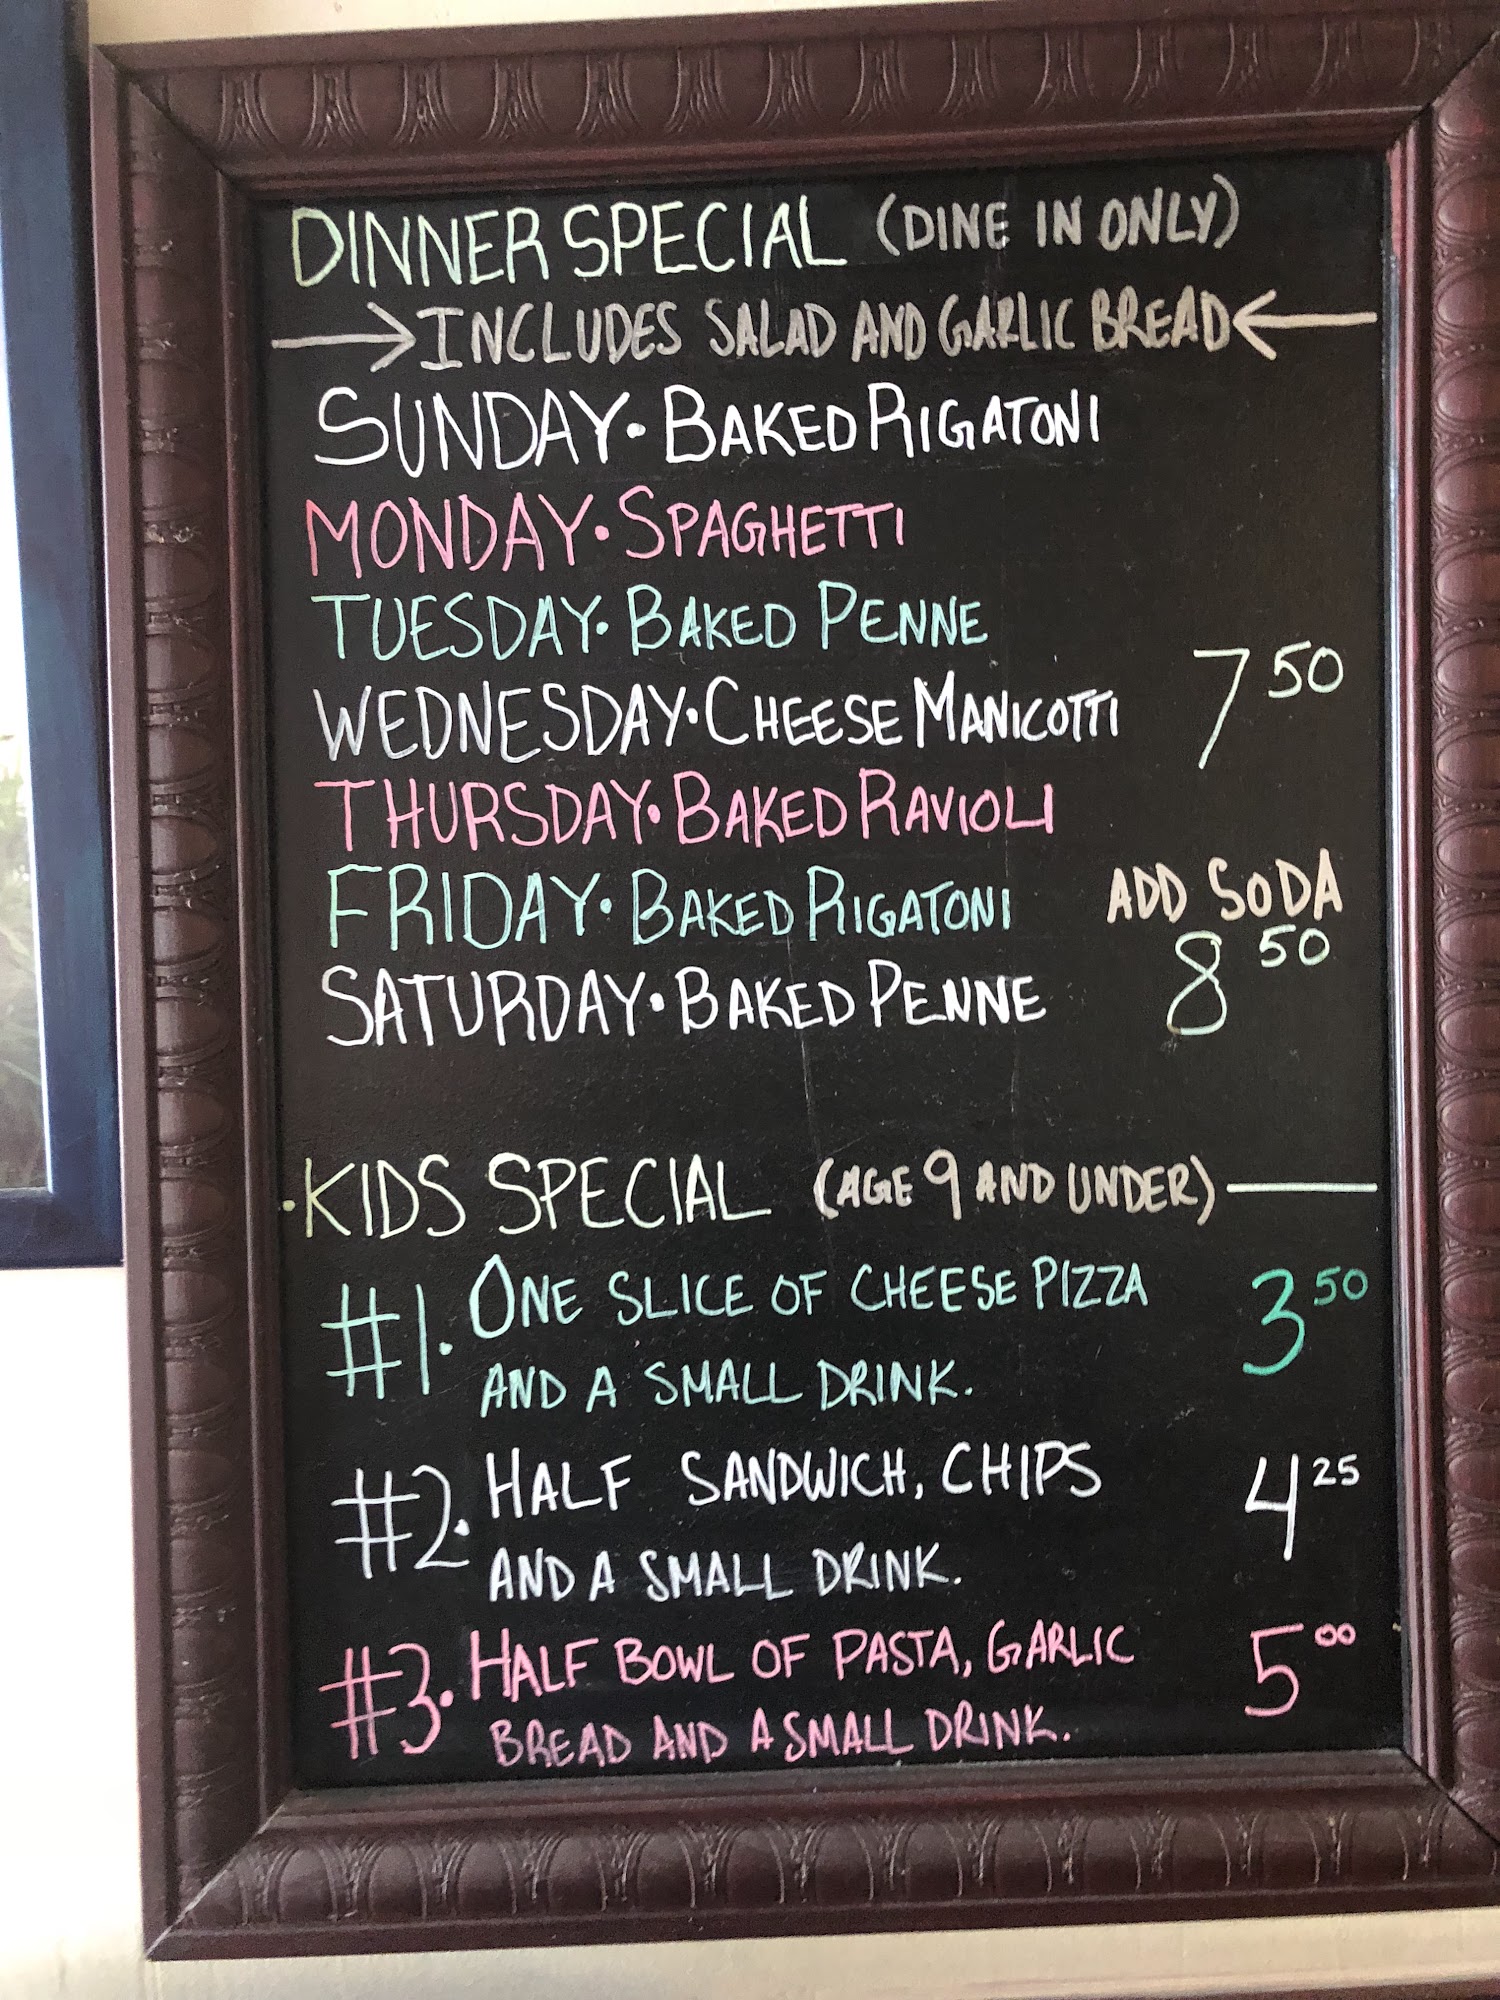 DINNER SPECIAL (DINE IN ONLY)
→INCLUDES SALAD AND GARLIC BREAD←
SUNDAY·BAKED RIGATONI
MONDAY·SPAGHETTI
TUESDAY·BAKED PENNE
7 50
WEDNESDAY·CHEESE MANICOTTI
THURSDAY·BAKED RAVIOLI
FRIDAY·BAKED RIGATONI
ADD SODA
8 50
SATURDAY·BAKED PENNE
·KIDS SPECIAL (AGE 9 AND UNDER)
#1. ONE SLICE OF CHEESE PIZZA 3 50
AND A SMALL DRINK.
#2. HALF SANDWICH, CHIPS 4 25
AND A SMALL DRINK.
#3. HALF BOWL OF PASTA, GARLIC 5 00
BREAD AND A SMALL DRINK.